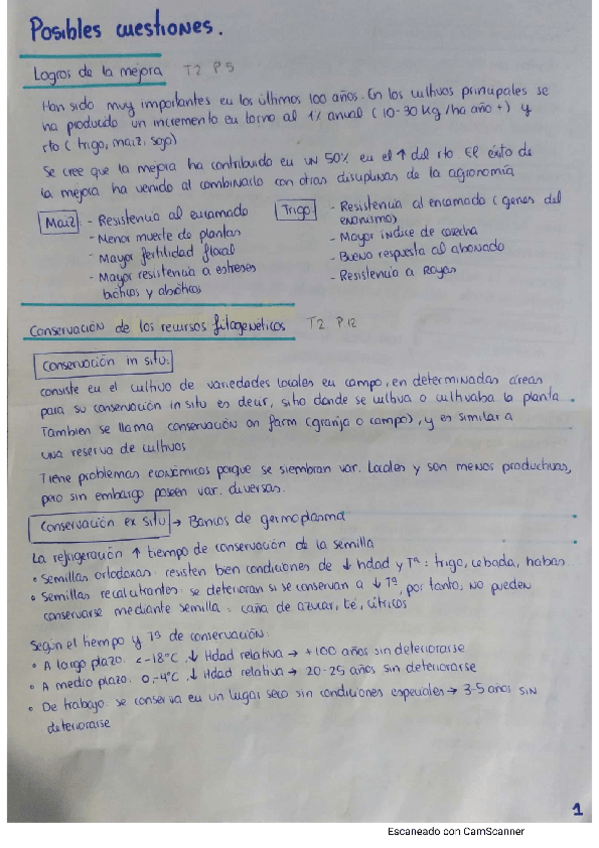 Posibles cuestiones.
Logros de la mejora T2 P5
Han sido muy importantes en los últimos 100 años. En los cultivos principales se
ha producido un incremento en torno al 1% anual (10-30 kg/ha año +) y
rto (trigo, maiz, soja)
Se cree que la mejora ha contribuido en un 50% en el ↑ del rto. El éxito de
la mejora ha venido al combinarlo con otras disciplinas de la agronomía
Maiz: - Resistencia al encamado
- Menor muerte de plantas
- Mayor fertilidad floral
- Mayor resistencia a estreses
bióticos y abióticos
Trigo - Resistencia al encamado (genes del
enanismo)
- Mayor índice de cosecha
- Buena respuesta al abonado
- Resistencia a Royas
Conservación de los recursos fitogenéticos T2 P12
Conservación in situ:
consiste en el cultivo de variedades locales en campo, en determinadas áreas
para su conservación in situ es decir, sitio donde se cultiva o cultivaba la planta.
Tambien se llama conservación on farm (granja o campo), y es similar a
una reserva de cultivos
Tiene problemas económicos porque se siembran var. locales y son menos productivas,
pero sin embargo poseen var. diversas.
Conservación ex situ → Bancos de germoplasma
La refrigeración ↑ tiempo de conservación de la semilla
• Semillas ortodoxas: resisten bien condiciones de ↓ hdad y Tª: trigo, cebada, habas
• Semillas recalcitrantes: se deterioran si se conservan a ↓ Tª, por tanto, no pueden
conservarse mediante semilla: caña de azucar, té, cítricos
Según el tiempo y Tª de conservación:
• A largo plazo: <-18ºC, ↓ Hdad relativa → +100 años sin deteriorarse
• A medio plazo: 0,-4ºC, ↓ Hdad relativa → 20-25 años sin deteriorarse
• De trabajo: se conserva en un lugar seco sin condiciones especiales → 3-5 años sin
deteriorarse
1
Escaneado con CamScanner